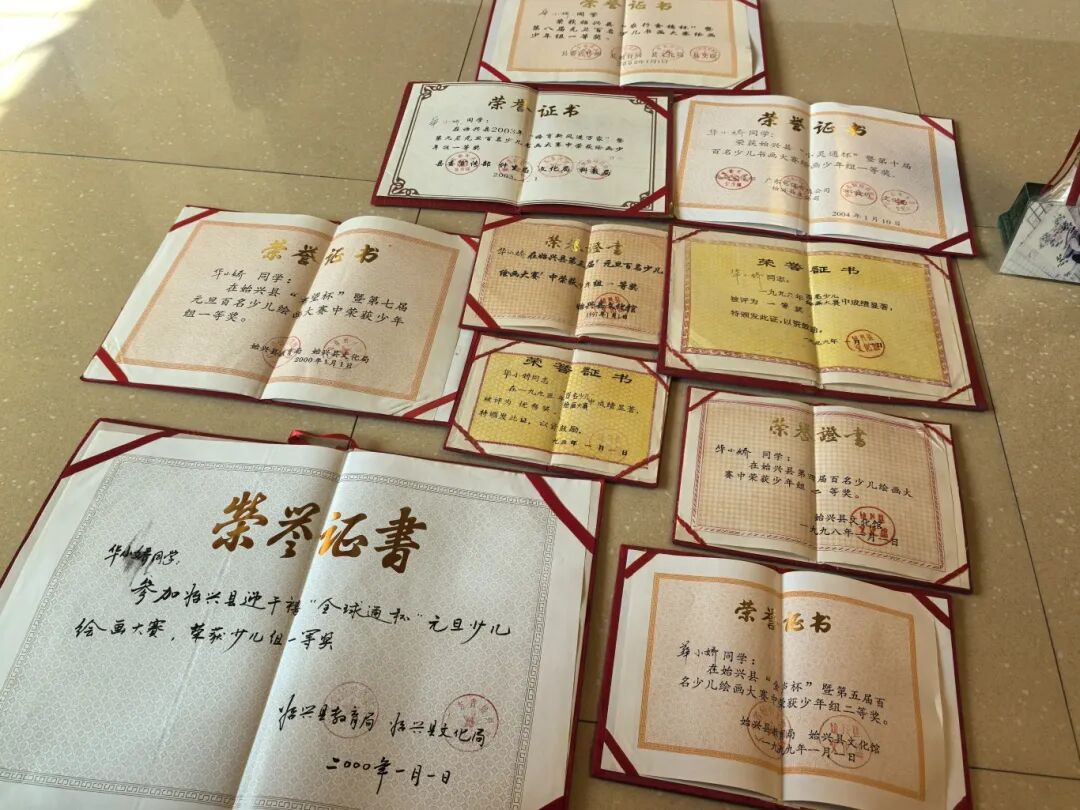 荣誉证书
华小娇 同学
荣获始兴县"农行金穗杯"暨
第八届元旦百名少儿书画大赛绘画
少年组一等奖。
荣誉证书
华小娇 同学:
在始兴县2003年"婚育新风进万家"暨
第九届元旦百名少儿书画大赛中荣获绘画少
年组一等奖
县委宣传部 计生局 文化局 科教局
荣誉证书
华小娇同学:
荣获始兴县"小灵通杯"暨第十届
百名少儿书画大赛绘画少年组一等奖。
2004年1月10日
荣誉证书
华小娇 同学:
在始兴县"希望杯"暨第七届
元旦百名少儿绘画大赛中荣获少年
组一等奖。
始兴县教育局 始兴县文化局
2000年1月1日
荣誉證書
华小娇 在始兴县第三届"元旦百名少儿
绘画大赛"中荣获 组一等奖
始兴县文化馆
1997年1月1日
荣誉証书
华小娇 同志:
一九九六年百名少儿
绘画大赛中成绩显著,
被评为 一等奖
特颁发此证,以资鼓励。
一九九六年 月 日
荣誉証书
华小娇同志
在一九九五年百名少儿
绘画大赛中成绩显著,
被评为 优秀奖
特颁发此证,以资鼓励。
九五年一月一日
荣誉證書
华小娇 同学:
在始兴县第四届百名少儿绘画大
赛中荣获少年组 二等奖。
始兴县文化馆
一九九八年一月一日
荣誉证書
华小娇同学,
参加始兴县迎千禧"全球通杯"元旦少儿
绘画大赛,荣获少儿组一等奖
始兴县教育局 始兴县文化局
二000年一月一日
荣誉证书
华小娇 同学:
在始兴县" 杯"暨第五届百
名少儿绘画大赛中荣获少年组二等奖。
始兴县教育局 始兴县文化馆
一九九九年一月一日